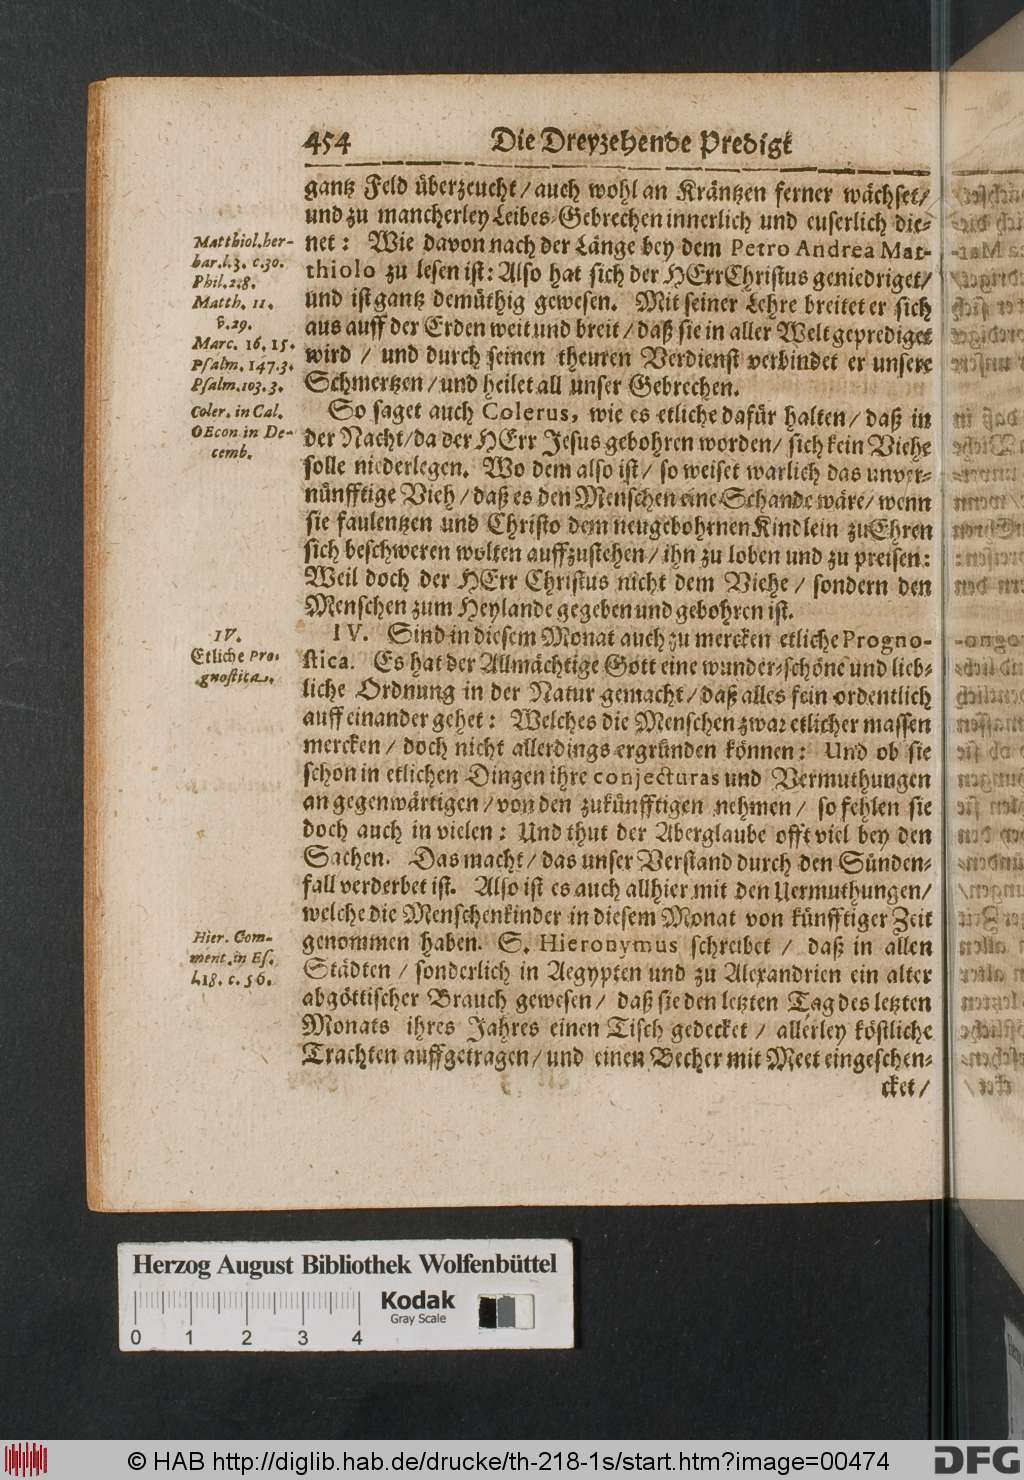 454 Die Dreyzehende Predigt
gantz Feld überzeucht / auch wohl an Kräntzen ferner wächset /
und zu mancherley Leibes-Gebrechen innerlich und euserlich die-
net: Wie davon nach der Länge bey dem Petro Andrea Mat-
thiolo zu lesen ist: Also hat sich der HErr Christus geniedriget /
und ist gantz demüthig gewesen. Mit seiner Lehre breitet er sich
aus auff der Erden weit und breit / daß sie in aller Welt geprediget
wird / und durch seinen theuren Verdienst verbindet er unsere
Schmertzen / und heilet all unser Gebrechen.
Matthiol. her-
bar. l. 3. c. 30.
Phil. 2.8.
Matth. 11.
v. 29.
Marc. 16. 15.
Psalm. 147. 3.
Psalm. 103. 3.
So saget auch Colerus, wie es etliche dafür halten / daß in
der Nacht / da der HErr Jesus gebohren worden / sich kein Viehe
solle niederlegen. Wo dem also ist / so weiset warlich das unver-
nünfftige Vieh / daß es den Menschen eine Schande wäre / wenn
sie faulentzen und Christo dem neugebohrnen Kindlein zu Ehren
sich beschweren wolten auffzustehen / ihn zu loben und zu preisen:
Weil doch der HErr Christus nicht dem Viehe / sondern den
Menschen zum Heylande gegeben und gebohren ist.
Coler. in Cal.
OEcon. in De-
cemb.
IV. Sind in diesem Monat auch zu mercken etliche Progno-
stica. Es hat der Allmächtige Gott eine wunder-schöne und lieb-
liche Ordnung in der Natur gemacht / daß alles fein ordentlich
auff einander gehet: Welches die Menschen zwar etlicher massen
mercken / doch nicht allerdings ergründen können: Und ob sie
schon in etlichen Dingen ihre conjecturas und Vermuthungen
an gegenwärtigen / von den zukünfftigen nehmen / so fehlen sie
doch auch in vielen: Und thut der Aberglaube offt viel bey den
Sachen. Das macht / das unser Verstand durch den Sünden-
fall verderbet ist. Also ist es auch allhier mit den Vermuthungen /
welche die Menschenkinder in diesem Monat von künfftiger Zeit
genommen haben. S. Hieronymus schreibet / daß in allen
Städten / sonderlich in Aegypten und zu Alexandrien ein alter
abgöttischer Brauch gewesen / daß sie den letzten Tag des letzten
Monats ihres Jahres einen Tisch gedecket / allerley köstliche
Trachten auffgetragen / und einen Becher mit Meet eingeschen-
cket /
IV.
Etliche Pro-
gnostica.
Hier. Com-
ment. in Es.
l. 18. c. 56.
Herzog August Bibliothek Wolfenbüttel
0 1 2 3 4
Kodak
Gray Scale
© HAB http://diglib.hab.de/drucke/th-218-1s/start.htm?image=00474
DFG